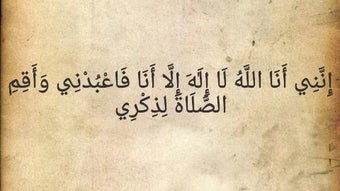 إِنَّنِي أَنَا اللَّهُ لَا إِلَهَ إِلَّا أَنَا فَاعْبُدْنِي وَأَقِمِ
الصَّلَاةَ لِذِكْرِي